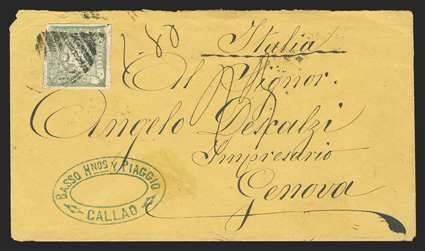 1.80
Italia
Al Signor.
Angelo Descalzi
Impresario
Genova
BASSO HNOS Y PIAGGIO
CALLAO